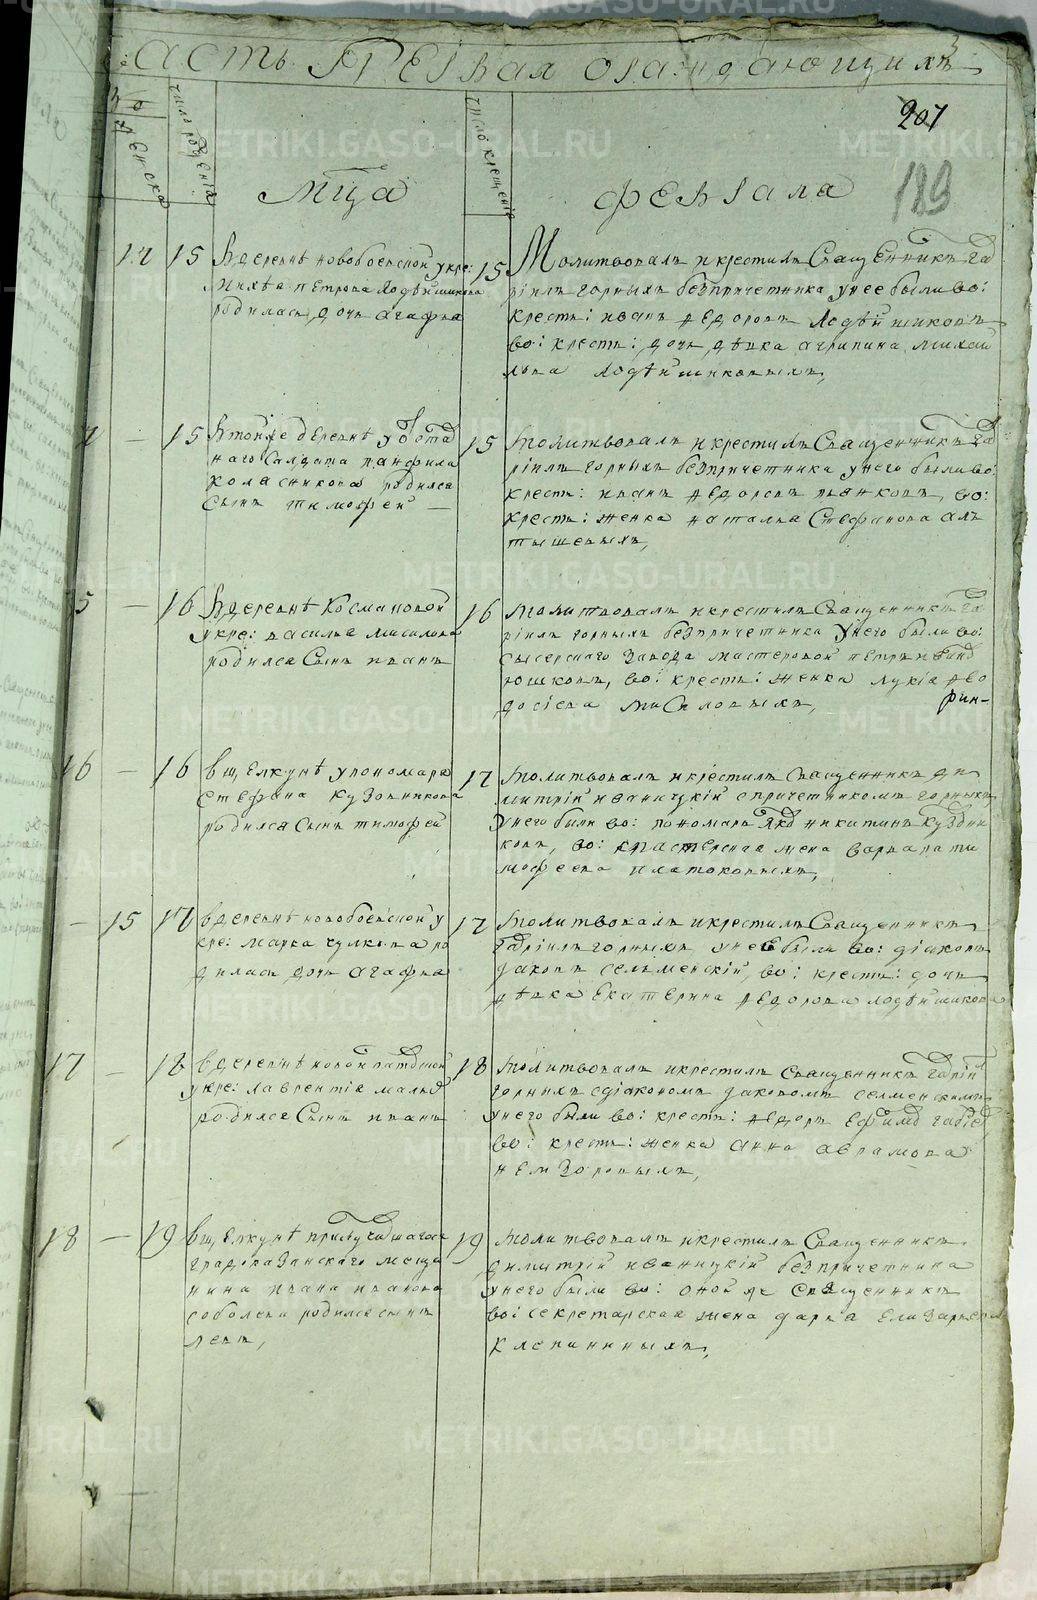 асть первая ораждающихъ
3
207
189
женска
число рожденїя
число крещенїя
Мца февраля
14 15 Вдеревнѣ новобоевской укре:
родилась дочь агафья
15 Молитвовалъ икрестилъ Священникъ га
врїилъ горныхъ безпричетника унее были во:
крест: иванъ ѳедоровъ
во: крест: дочь дѣвка агрипина михаи
лова
15 Втойже деревнѣ уотста
наго Салдата панфила
колясникова родился
Сынъ тимофеи
15 молитвовалъ икрестилъ Священникъ га
врїилъ горныхъ безпричетника унего были во
крест: иванъ ѳедоровъ пьянковъ, во:
крест: женка наталья Стефанова ал
тышевыхъ,
5 — 16 Вдеревнѣ Космаковой
укре: василья мисилова
родился Сынъ иванъ
16 молитвовалъ икрестилъ Священникъ га
врїилъ горныхъ безпричетника Унего были во:
Сысерскаго Завода мастеровой петръ
юшковъ, во: крест: женка лукїя ѳео
досїева мисиловыхъ, фин-
16 — 16 вщелкунѣ упономаря
стефана кузовникова
родился Сынъ тимофей
17 молитвовалъ икрестилъ Священникъ ди
митрїй иваницкїй спричетникомъ горныхъ
Унего были во: пономарь яко никитинъ
ковъ, во: мастерская жена варвара ти
мофеева платоновыхъ,
— 15 17 вдеревнѣ новобоевской у
кре: марка чулкова ро
дилась дочь агафья
17 молитвовалъ икрестилъ Священникъ
Гаврїилъ горныхъ унее были во: дїаконъ
яковъ селменскїй, во: крест: дочь
дѣвка Екатерина ѳедорова
17 — 18 вдеревнѣ новоипатовской
укре: лаврентїя
родился Сынъ иванъ
18 молитвовалъ икрестилъ Священникъ гаврїил
горныхъ сдїакономъ яковомъ селменскимъ
унего были во: крест: ѳедоръ
во: крест: женка анна аврамова
немзоровыхъ,
18 — 19 вщелкунѣ прилучившагося
градоказанскаго меща
нина ивана иванова
соболева родился сынъ
левъ,
19 молитвовалъ икрестилъ Священникъ
димитрїй иваницкїй безпричетника
унего были во: оной же Священникъ
во: секретарская жена дарья Елизарьева
клепининыхъ,